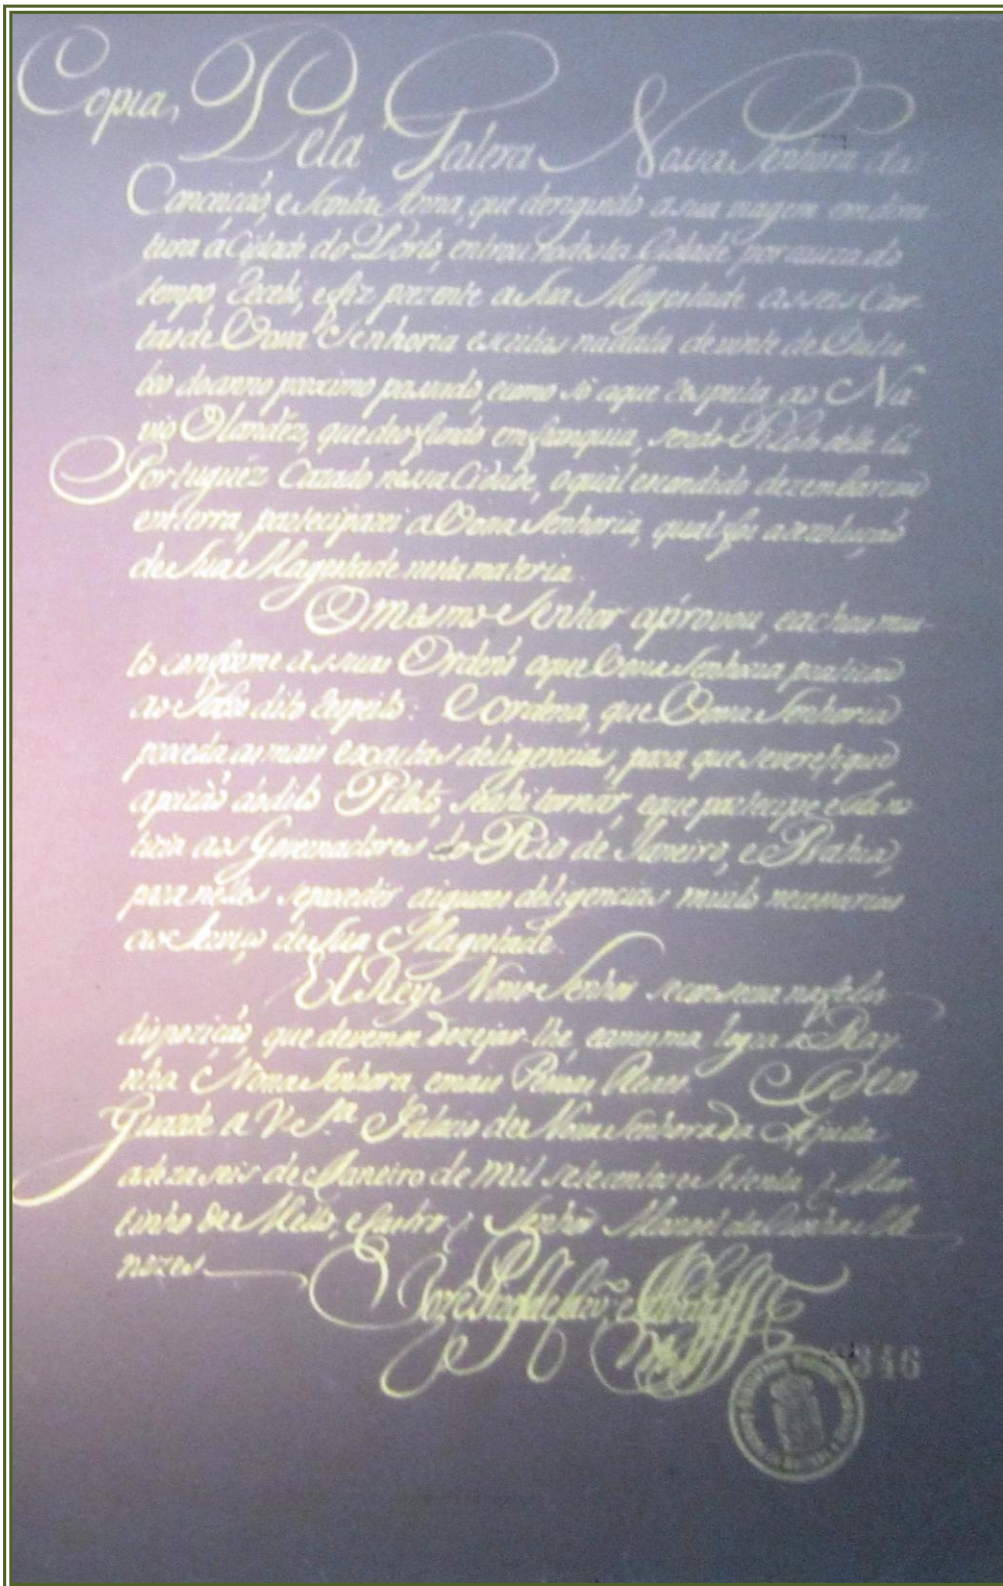 Copia,
Pela Galera Nossa Senhora da
Conceicaõ, e Santa Anna, que derigindo a sua viagem em direi-
tura á Cidade do Porto, entrou nesta Cidade por cauza do
tempo, Recebi, e fiz prezente a Sua Magestade as seis Car-
tas de Vossa Senhoria escritas na data de vinte de Outu-
bro do anno proximo passado, e como só a que respeita ao Na-
vio Olandêz, que deo fundo em franquia, sendo Piloto delle hũ
Portuguêz Cazado nessa Cidade, o qual escondido dezembarcou
em terra, participarei a Vossa Senhoria, qual foi a rezoluçaõ
de Sua Magestade nesta materia.
O mesmo Senhor aprovou, e achou mui-
to conforme a suas Ordens o que Vossa Senhoria praticou
ao Sobredito respeito: E ordena, que Vossa Senhoria
proceda as mais exactas deligencias, para que se verefique
a prizaõ do dito Piloto, se ahi tornar, e que participe esta no-
ticia aos Governadores do Rio de Janeiro, e Bahia,
para nelles se proceder a iguaes deligencias muito necessarias
ao Serviço de Sua Magestade.
El Rey Nosso Senhor se conserva na feliz
dispoziçaõ, que devemos dezejar-lhe, e a mesma logra a Ray-
nha Nossa Senhora, e mais Pessoas Reaes. Deos
Guarde a V. S.ª Palacio de Nossa Senhora da Ajuda
a dezaseis de Janeiro de mil setecentos e Setenta // Mar-
tinho de Mello, e Castro // Senhor Manoel da Cunha e Me-
nezes
346